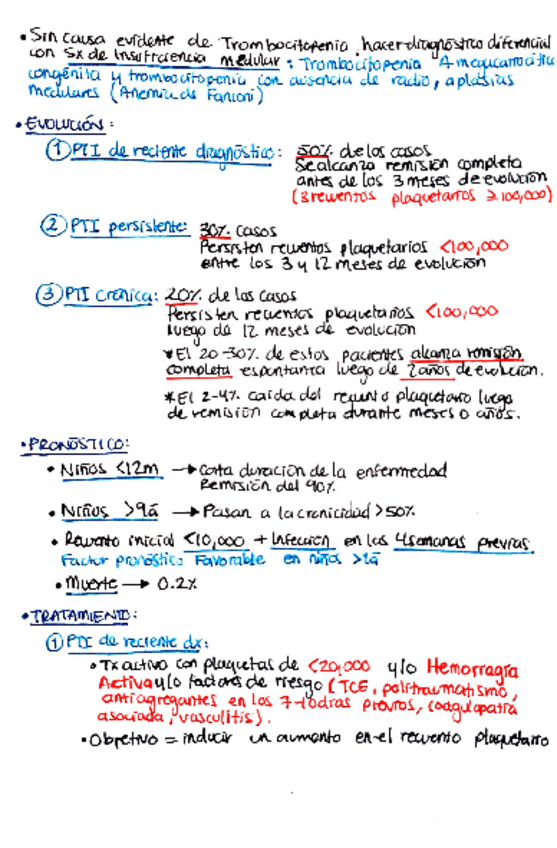 • Sin causa evidente de Trombocitopenia, hacer diagnóstico diferencial
con Sx de Insuficiencia medular: Trombocitopenia Amegacarocítica
congénita y trombocitopenia con ausencia de radio, aplasias
medulares (Anemia de Fanconi)
• EVOLUCIÓN:
① PTI de reciente diagnóstico: 50% de los casos
Se alcanza remisión completa
antes de los 3 meses de evolución
(3 recuentos plaquetarios ≥100,000)
② PTI persistente: 30% casos
Persisten recuentos plaquetarios <100,000
entre los 3 y 12 meses de evolución
③ PTI crónica: 20% de los casos
Persisten recuentos plaquetarios <100,000
luego de 12 meses de evolución
*El 20-30% de estos pacientes alcanza remisión
completa espontanea luego de 2 años de evolución.
*El 2-4% caída del recuento plaquetario luego
de remisión completa durante meses o años.
• PRONÓSTICO:
• Niños <12m → Corta duración de la enfermedad
Remisión del 90%
• Niños >9a → Pasan a la cronicidad >50%
• Recuento inicial <10,000 + Infección en las 4 semanas previas
Factor pronóstico Favorable en niños >1a
• Muerte → 0.2%
• TRATAMIENTO:
① PTI de reciente dx:
• Tx activo con plaquetas de <20,000 y/o Hemorragia
Activa y/o factores de riesgo (TCE, politraumatismo,
antiagregantes en los 7-10 días previos, coagulopatía
asociada, vasculitis).
• Objetivo = inducir un aumento en el recuento plaquetario